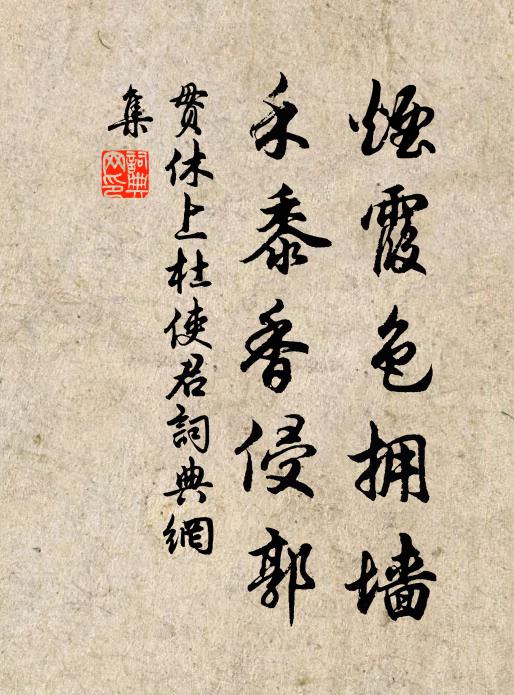 煙霞色拥墙
禾黍香侵郭
贯休上杜使君詞典網
集
詞典
网印